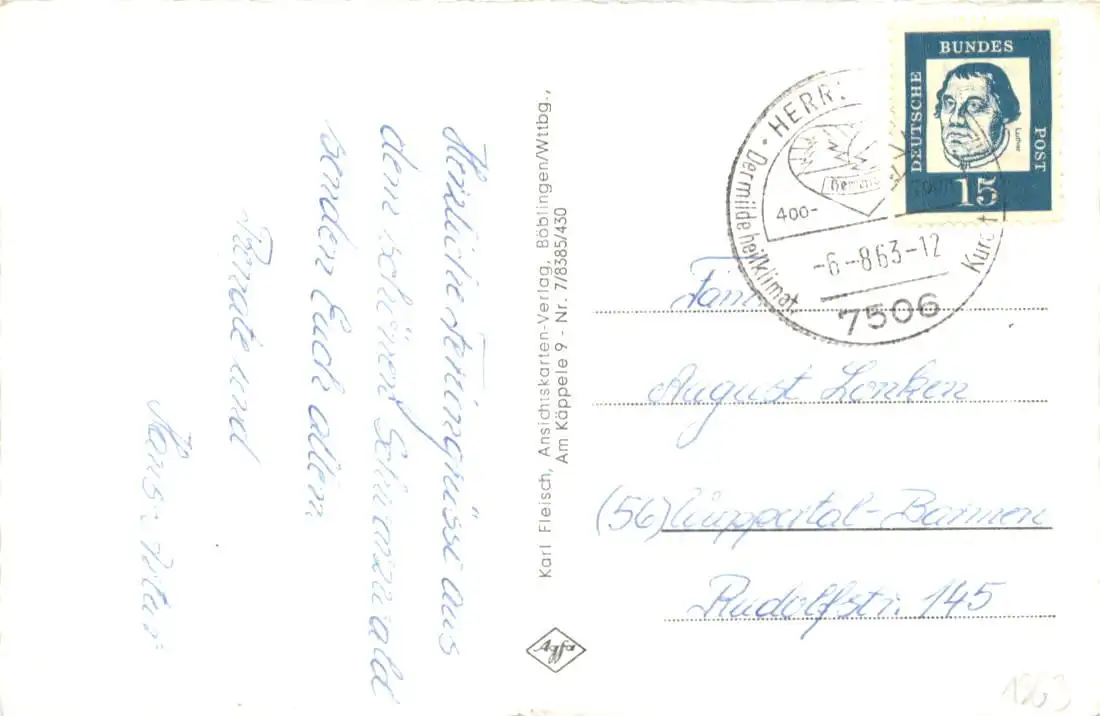 Herzliche Feriengrüsse aus
dem schönen Schwarzwald
senden Euch allen
Renate und
Hans-Peter
Karl Fleisch, Ansichtskarten-Verlag, Böblingen/Wttbg.,
Am Käppele 9 - Nr. 7/8385/430
Agfa
DEUTSCHE
BUNDES
POST
Luther
15
HERR
Der milde heilklimat.
Kurort
400-
700m
-6.-8.63-12
7506
Fam.
August Lonken
(56) Wuppertal-Barmen
Rudolfstr. 145
1963